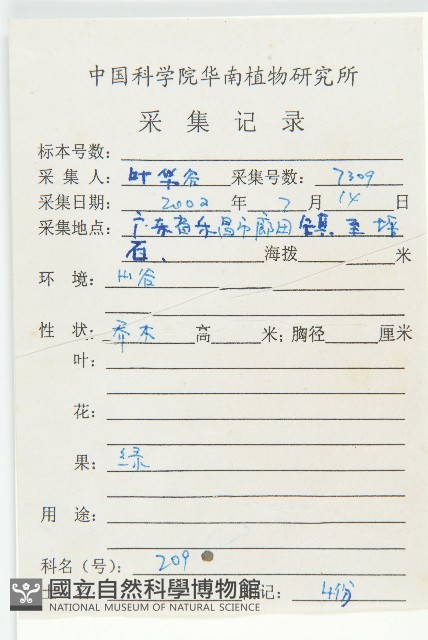 中国科学院华南植物研究所
采集记录
标本号数：
采集人：叶华谷 采集号数：7309
采集日期：2002年7月14日
采集地点：广东省乐昌市廊田镇至坪
石、 海拨 米
环境：山谷
性状：乔木 高 米；胸径 厘米
叶：
花：
果：绿
用途：
科名（号）：209
记：4份
國立自然科學博物館
NATIONAL MUSEUM OF NATURAL SCIENCE